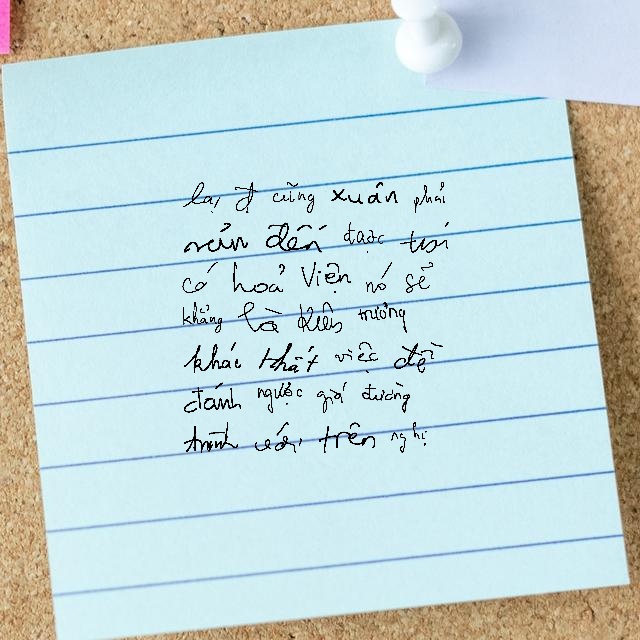 lại đ cũng xuân phải
đến được trái
có hoả Viện nó sẽ
khẳng là kiên trưởng
khác thất việc đội
đánh ngược giá đường
trình với trên nghị